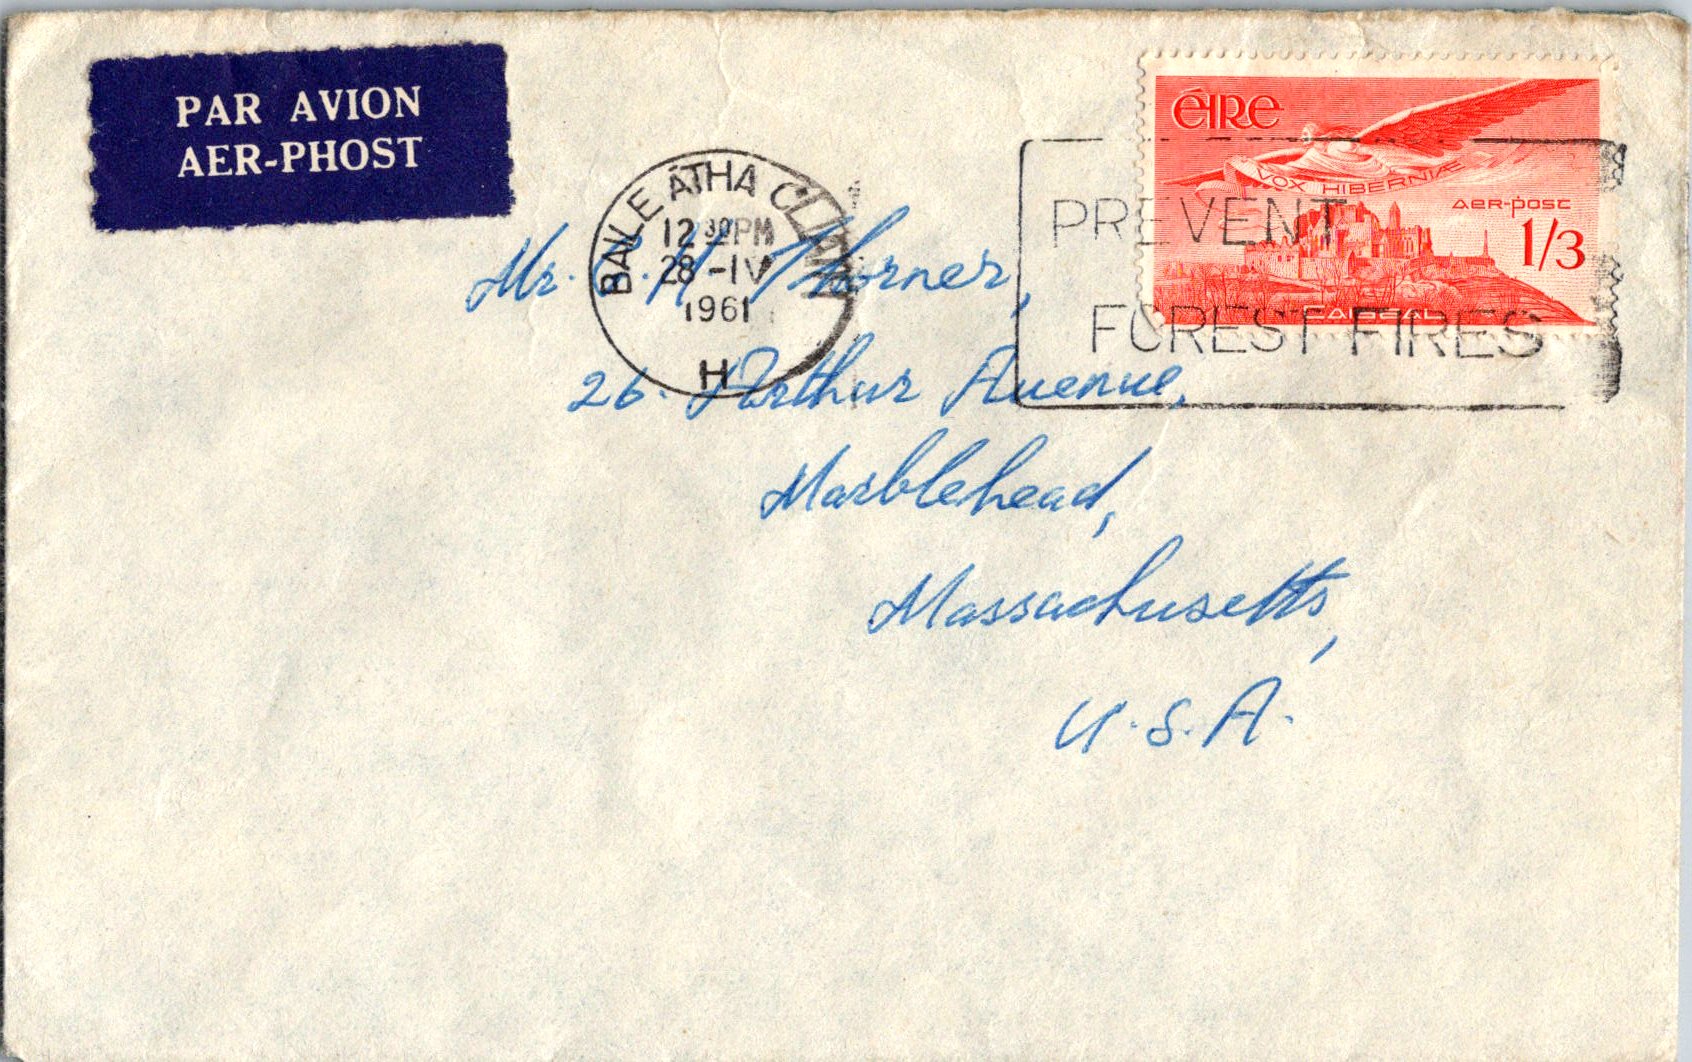 PAR AVION
AER-PHOST
BAILE ÁTHA CLIATH
12 30 PM
28 -IV
1961
H
ÉIRE
VOX HIBERNIÆ
AER-POST
1/3
CAISEAL
PREVENT
FOREST FIRES
Mr. C. H. Thorner,
26. Arthur Avenue,
Marblehead,
Massachusetts,
U.S.A.